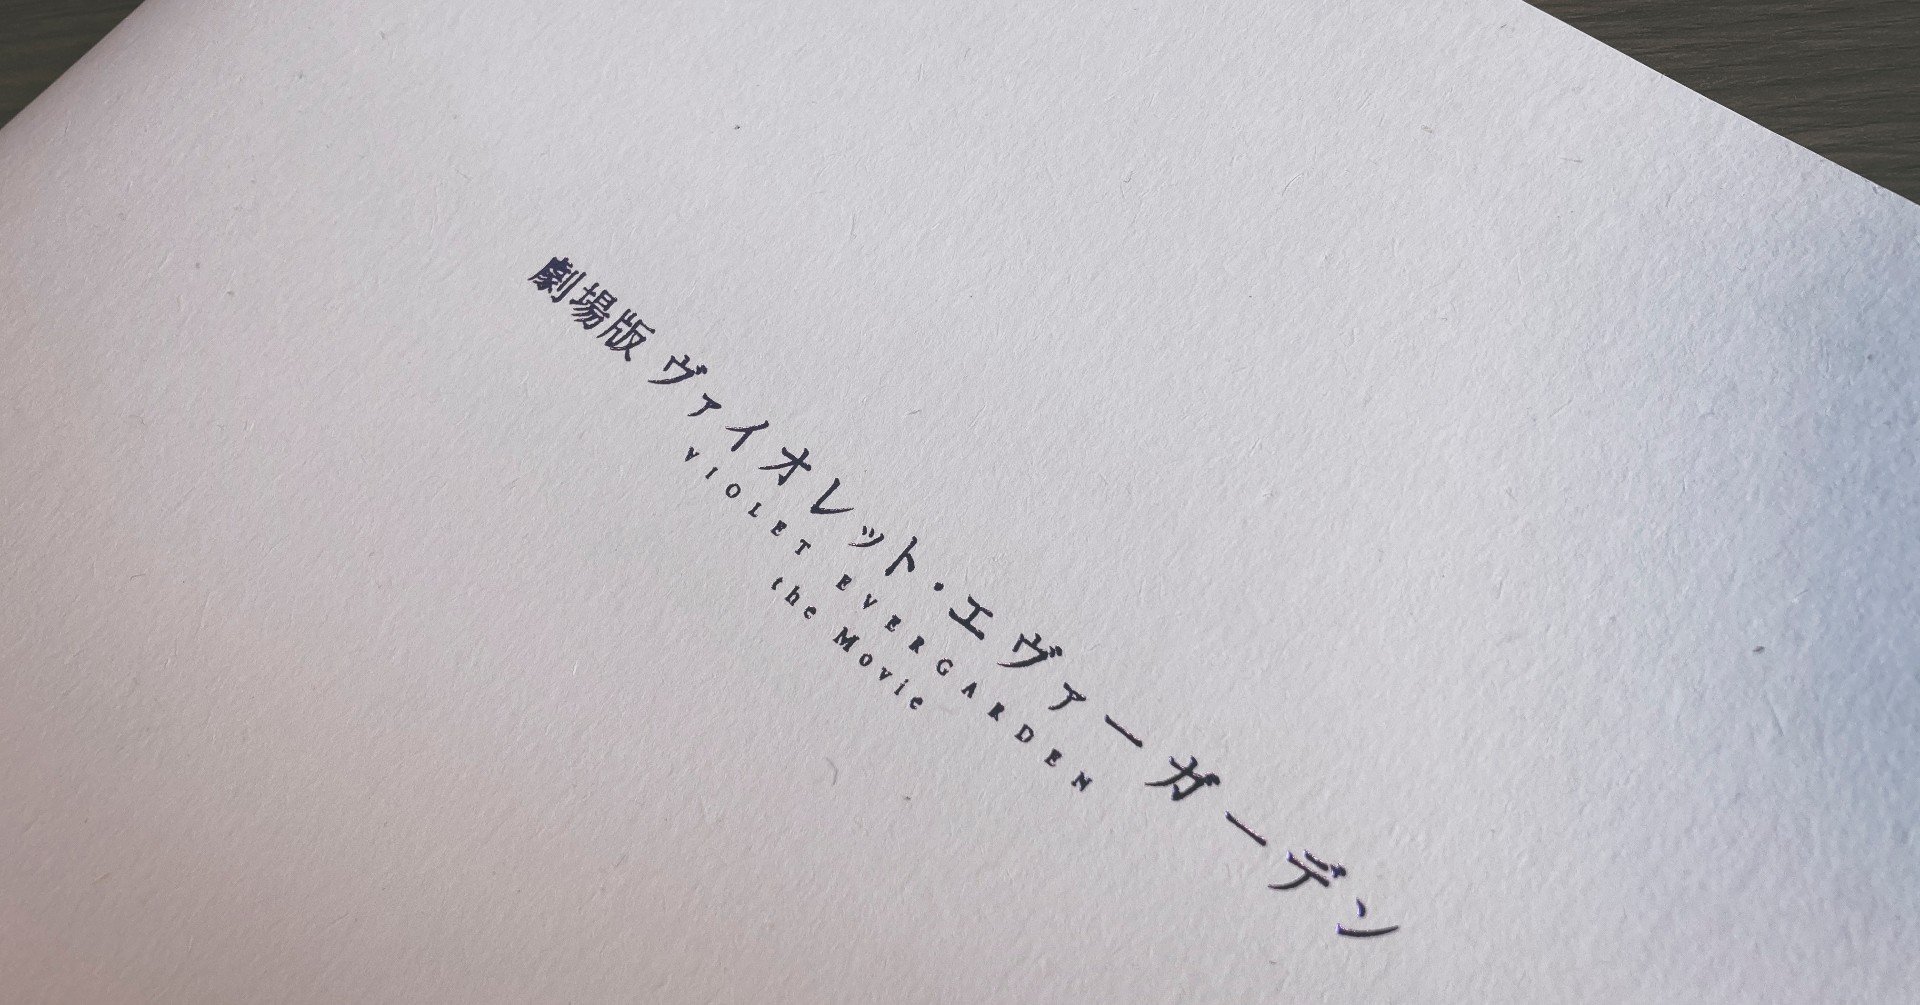 劇場版 ヴァイオレット・エヴァーガーデン
VIOLET EVERGARDEN
the Movie